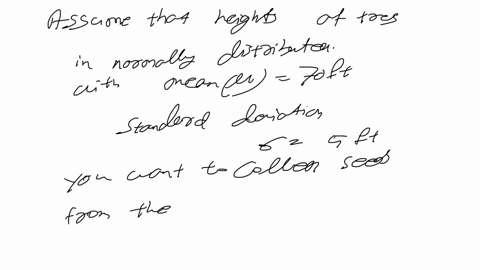 Asscime that heights of tres
in normally distribution.
with mean(μ) = 70ft
Standard deviation
σ = 5 ft
you want to Collect seeds
from the